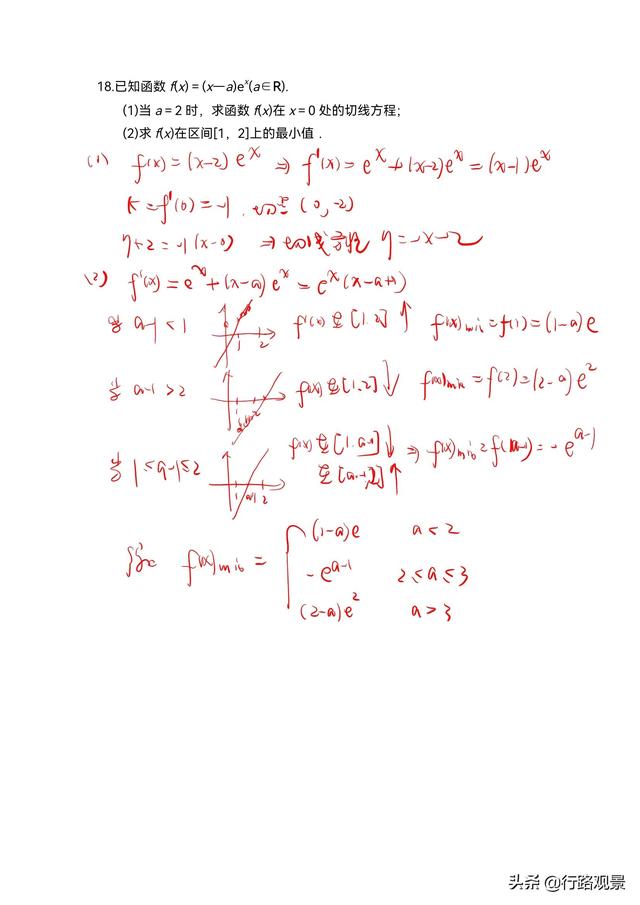 18.已知函数 f(x)=(x—a)eˣ(a∈R).
(1)当 a=2 时，求函数 f(x)在 x=0 处的切线方程；
(2)求 f(x)在区间[1，2]上的最小值．
(1) f(x)=(x-2)eˣ ⇒ f'(x)=eˣ+(x-2)eˣ=(x-1)eˣ
k=f'(0)=-1. 切点(0,-2)
y+2=-1(x-0) ⇒切线方程 y=-x-2
(2) f'(x)=eˣ+(x-a)eˣ=eˣ(x-a+1)
当 a-1<1 1 2 f(x)在[1,2]↑ f(x)min=f(1)=(1-a)e
当 a-1>2 1 2 f(x)在[1,2]↓ f(x)min=f(2)=(2-a)e²
当 1≤a-1≤2 1 a-1 2 f(x)在[1,a-1]↓ ⇒ f(x)min=f(a-1)=-e^(a-1)
在[a-1,2]↑
f(x)min= { (1-a)e a<2
-e^(a-1) 2≤a≤3
(2-a)e² a>3
头条 @行路观景